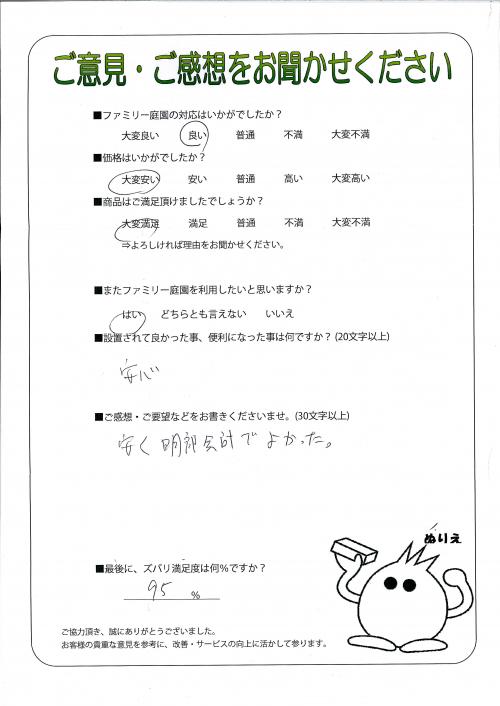 ご意見・ご感想をお聞かせください
■ファミリー庭園の対応はいかがでしたか？
大変良い 良い 普通 不満 大変不満
■価格はいかがでしたか？
大変安い 安い 普通 高い 大変高い
■商品はご満足頂けましたでしょうか？
大変満足 満足 普通 不満 大変不満
⇒よろしければ理由をお聞かせください。
■またファミリー庭園を利用したいと思いますか？
はい どちらとも言えない いいえ
■設置されて良かった事、便利になった事は何ですか？(20文字以上)
安心
■ご感想・ご要望などをお書きくださいませ。(30文字以上)
安く明朗会計でよかった。
ぬりえ
■最後に、ズバリ満足度は何%ですか？
95 %
ご協力頂き、誠にありがとうございました。
お客様の貴重な意見を参考に、改善・サービスの向上に活かして参ります。